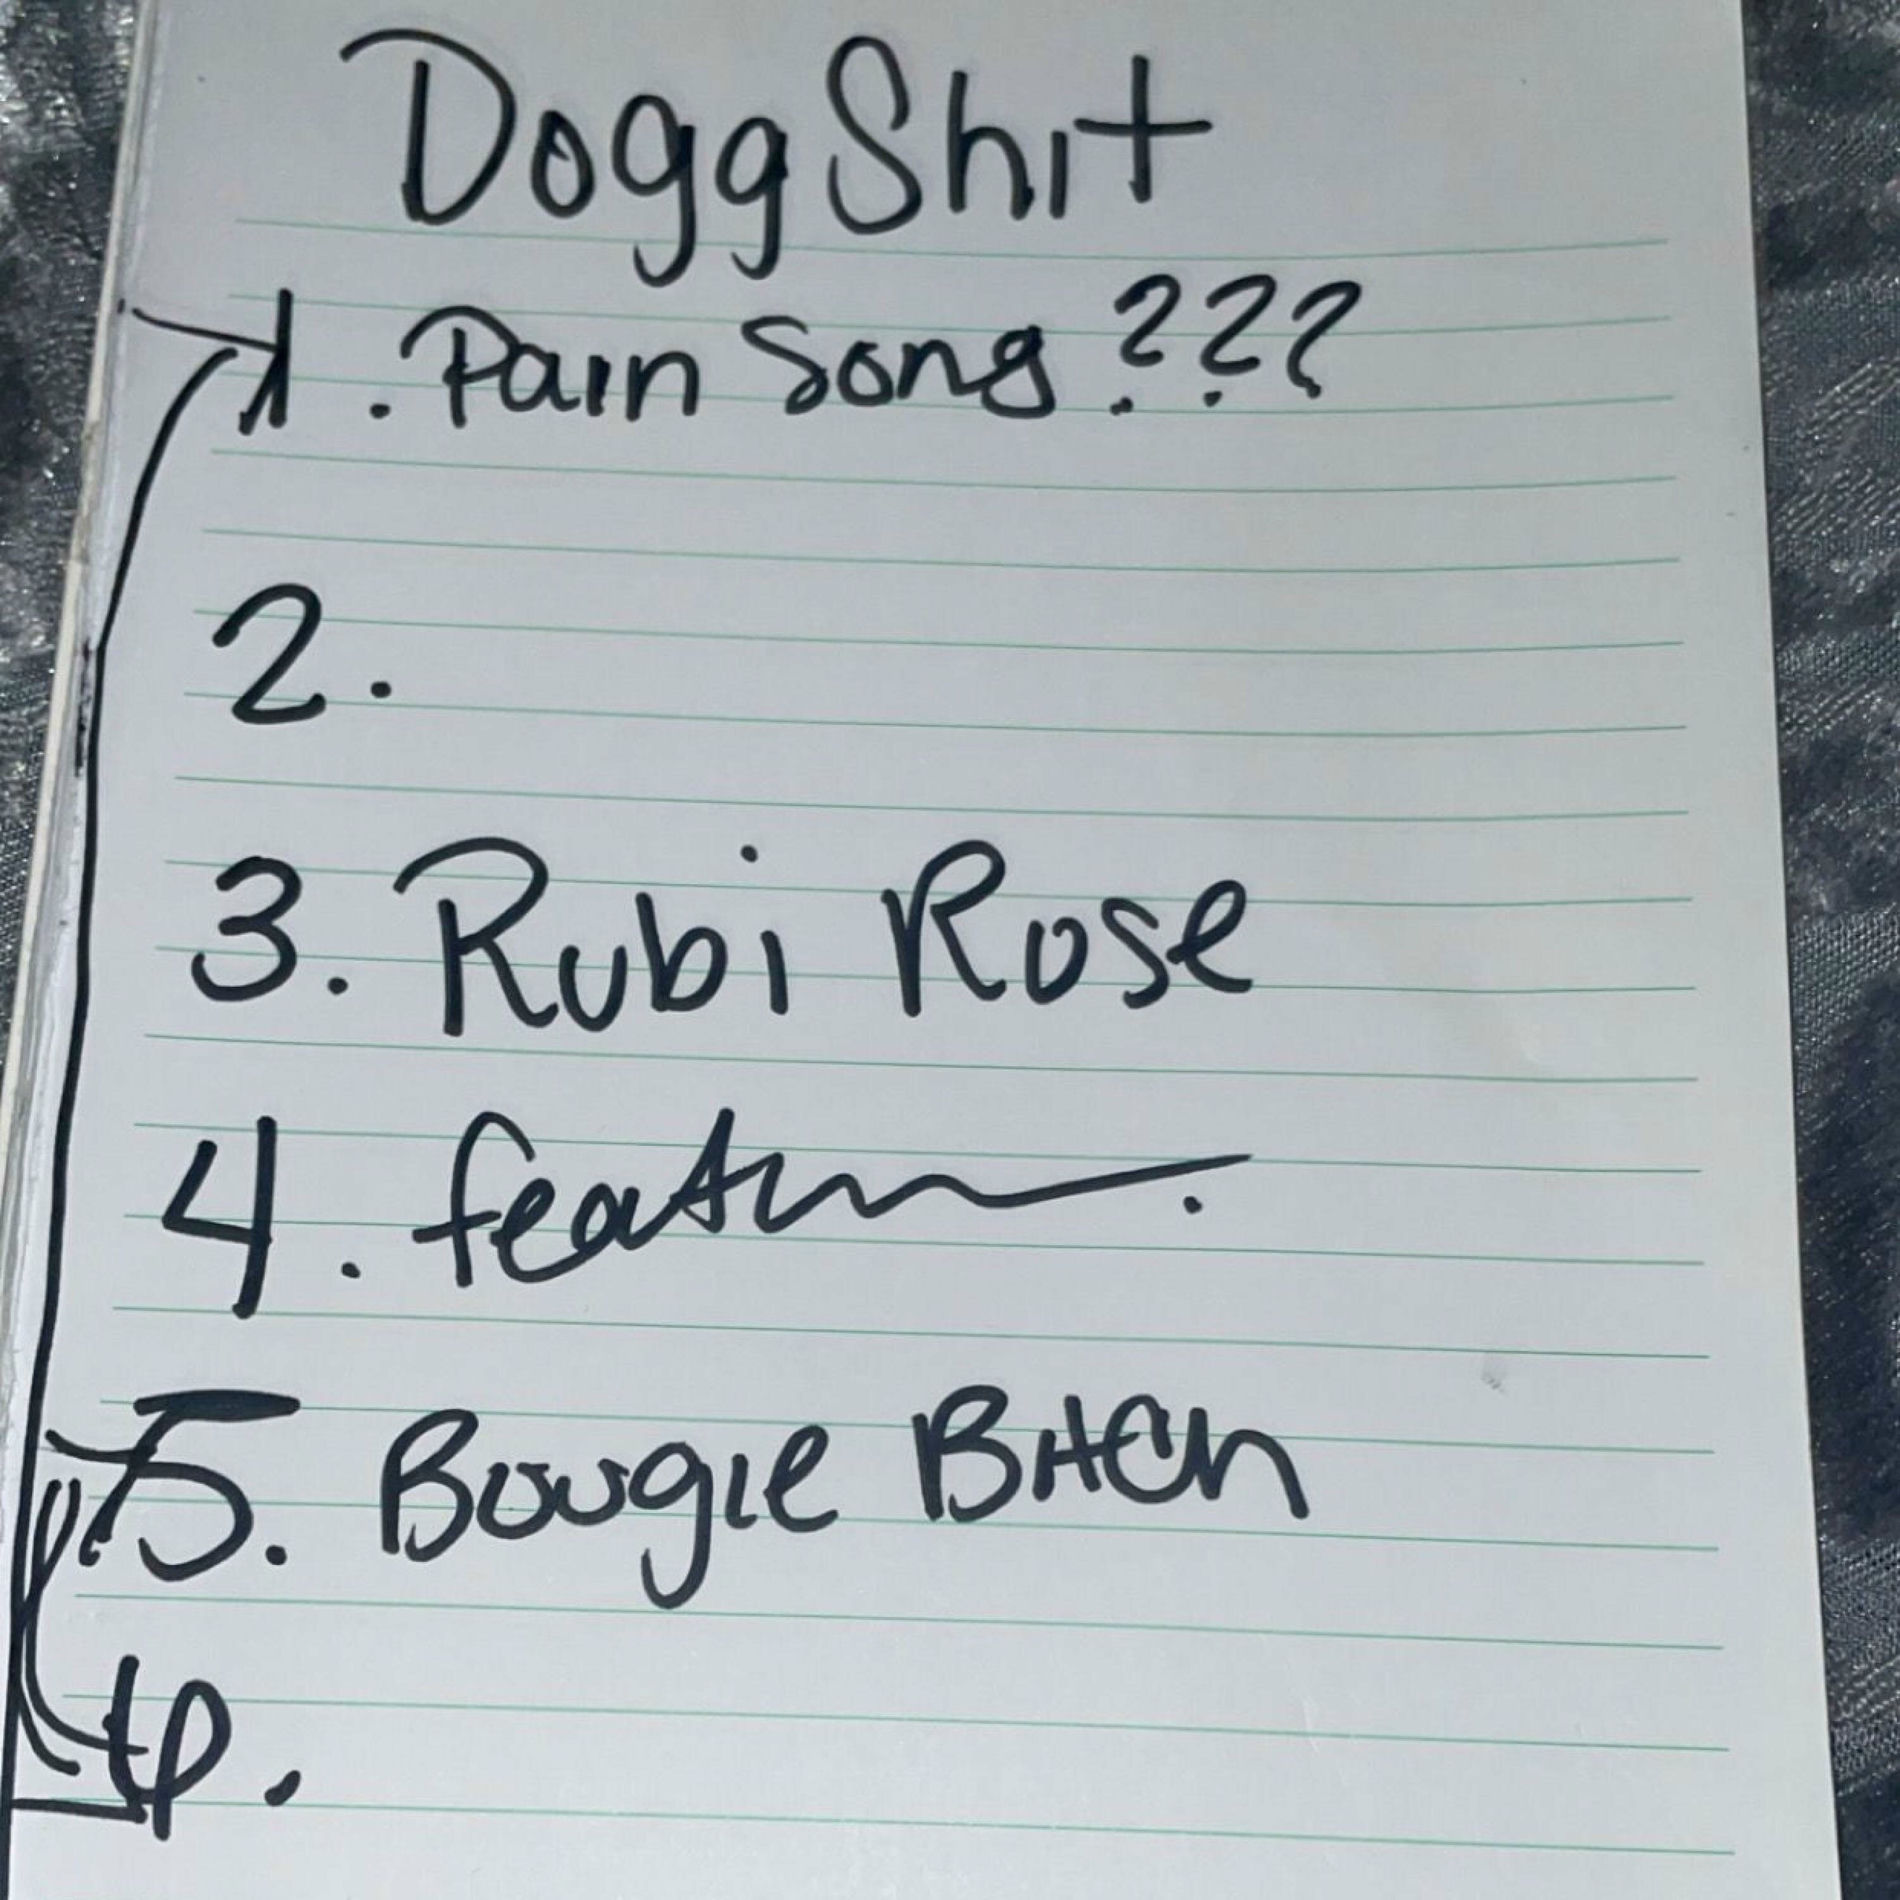 Dogg Shit
1. Pain Song ???
2.
3. Rubi Rose
4. Featur
5. Bougie Bitch
6.